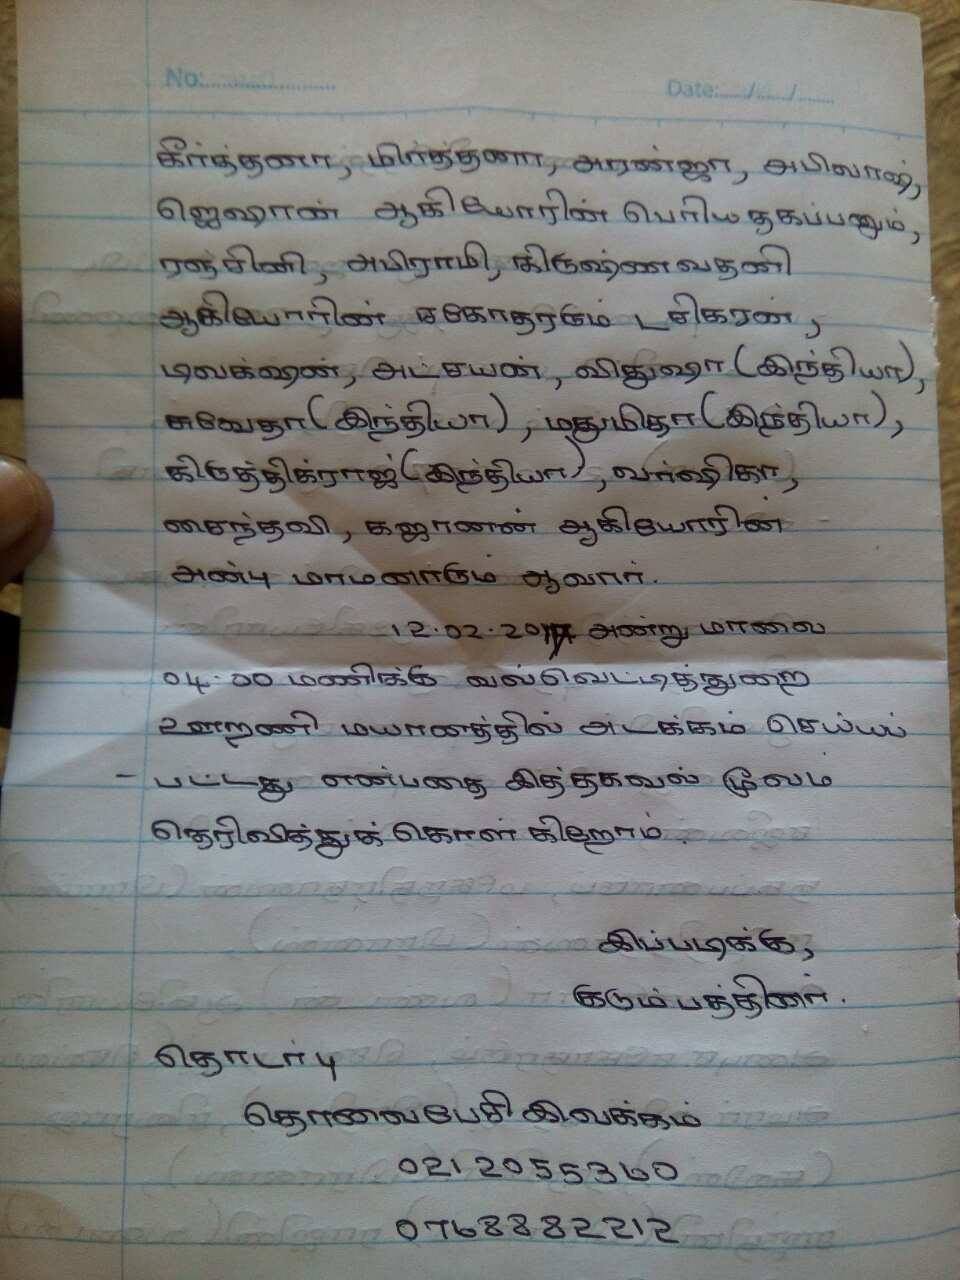 No:........................
Date:...../...../.......
கீர்த்தனா, மிர்த்தனா, அரண்ஜா, அபிலாஷ்,
ஜெஷான் ஆகியோரின் பெரியதகப்பனும்,
ரஞ்சினி, அபிராமி, கிருஷ்ணவதனி
ஆகியோரின் சகோதரரும் டசிகரன்,
டிலக்ஷன், அட்சயன், விதுஷா (இந்தியா),
சுவேதா (இந்தியா), மதுமிதா (இந்தியா),
கிருத்திக்ராஜ் (இந்தியா), வர்ஷிகா,
சைந்தவி, கஜானன் ஆகியோரின்
அன்பு மாமனாரும் ஆவார்.
12.02.2017 அன்று மாலை
04.00 மணிக்கு வல்வெட்டித்துறை
ஊறணி மயானத்தில் அடக்கம் செய்யப்
- பட்டது என்பதை இத்தகவல் மூலம்
தெரிவித்துக் கொள்கிறோம்.
இப்படிக்கு,
குடும்பத்தினர்.
தொடர்பு
தொலைபேசி இலக்கம்
021 2055360
0768882212